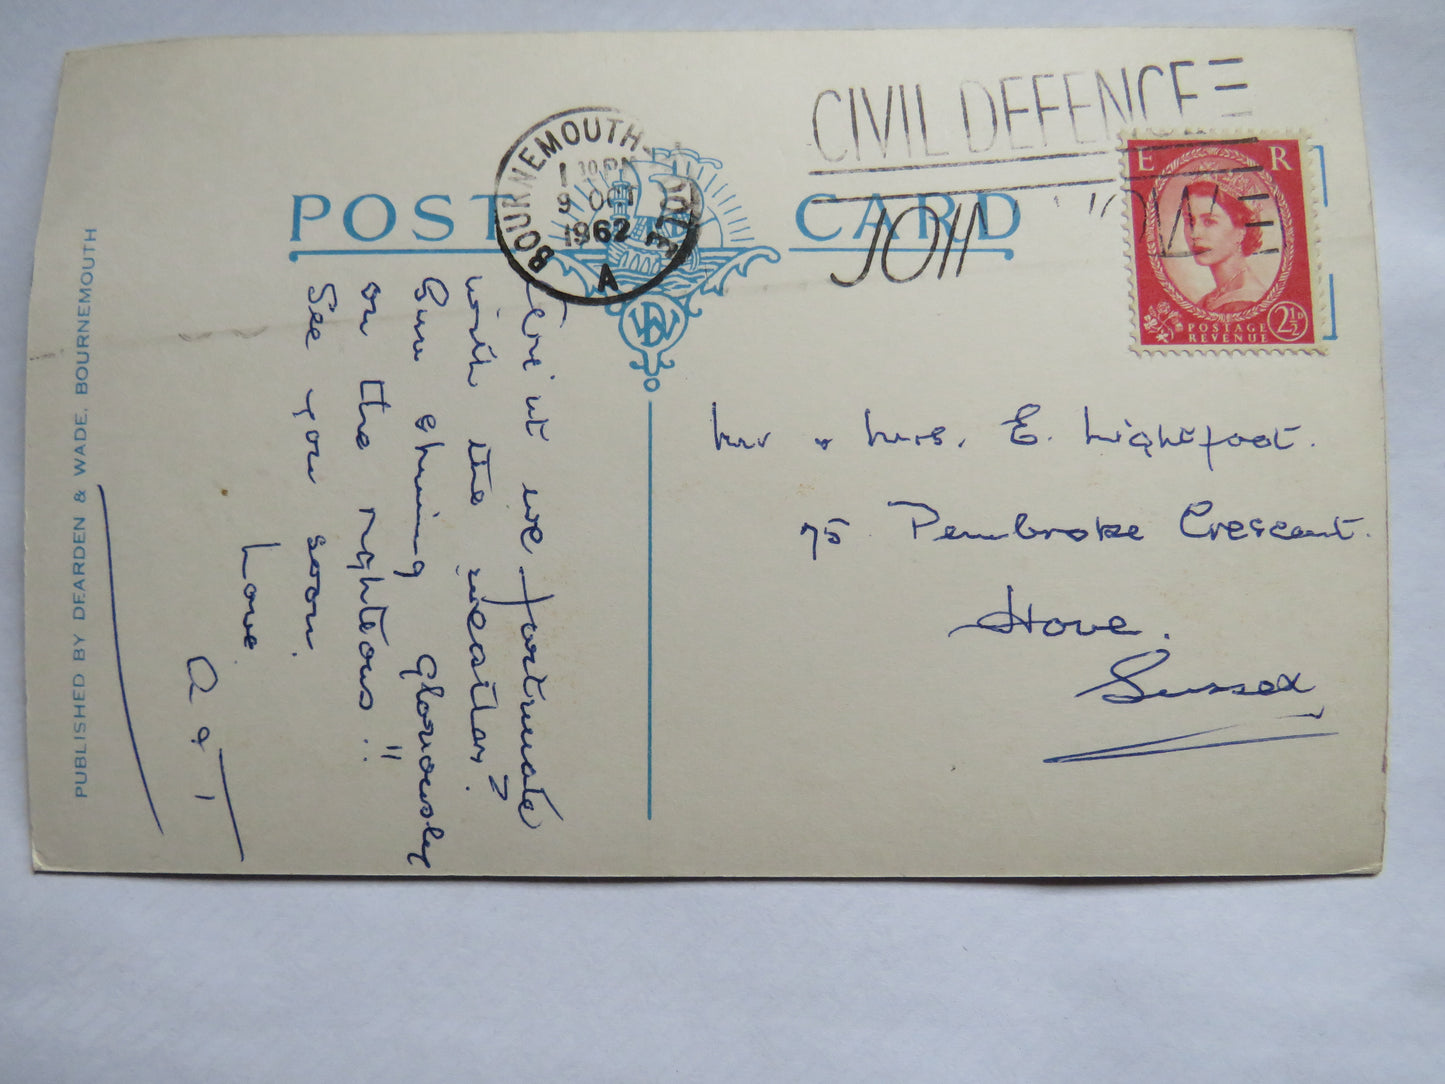 CIVIL DEFENCE
JOIN NOW
BOURNEMOUTH - POOLE
1 30 PM
9 OCT
1962
A
POST CARD
E R
POSTAGE REVENUE 2½D
Mr & Mrs. E. Lightfoot.
75 Pembroke Crescent.
Hove.
Sussex
Aren't we fortunate
with the weather?
Sun shining gloriously
on the righteous!!
See you soon.
Love
A & T
PUBLISHED BY DEARDEN & WADE, BOURNEMOUTH